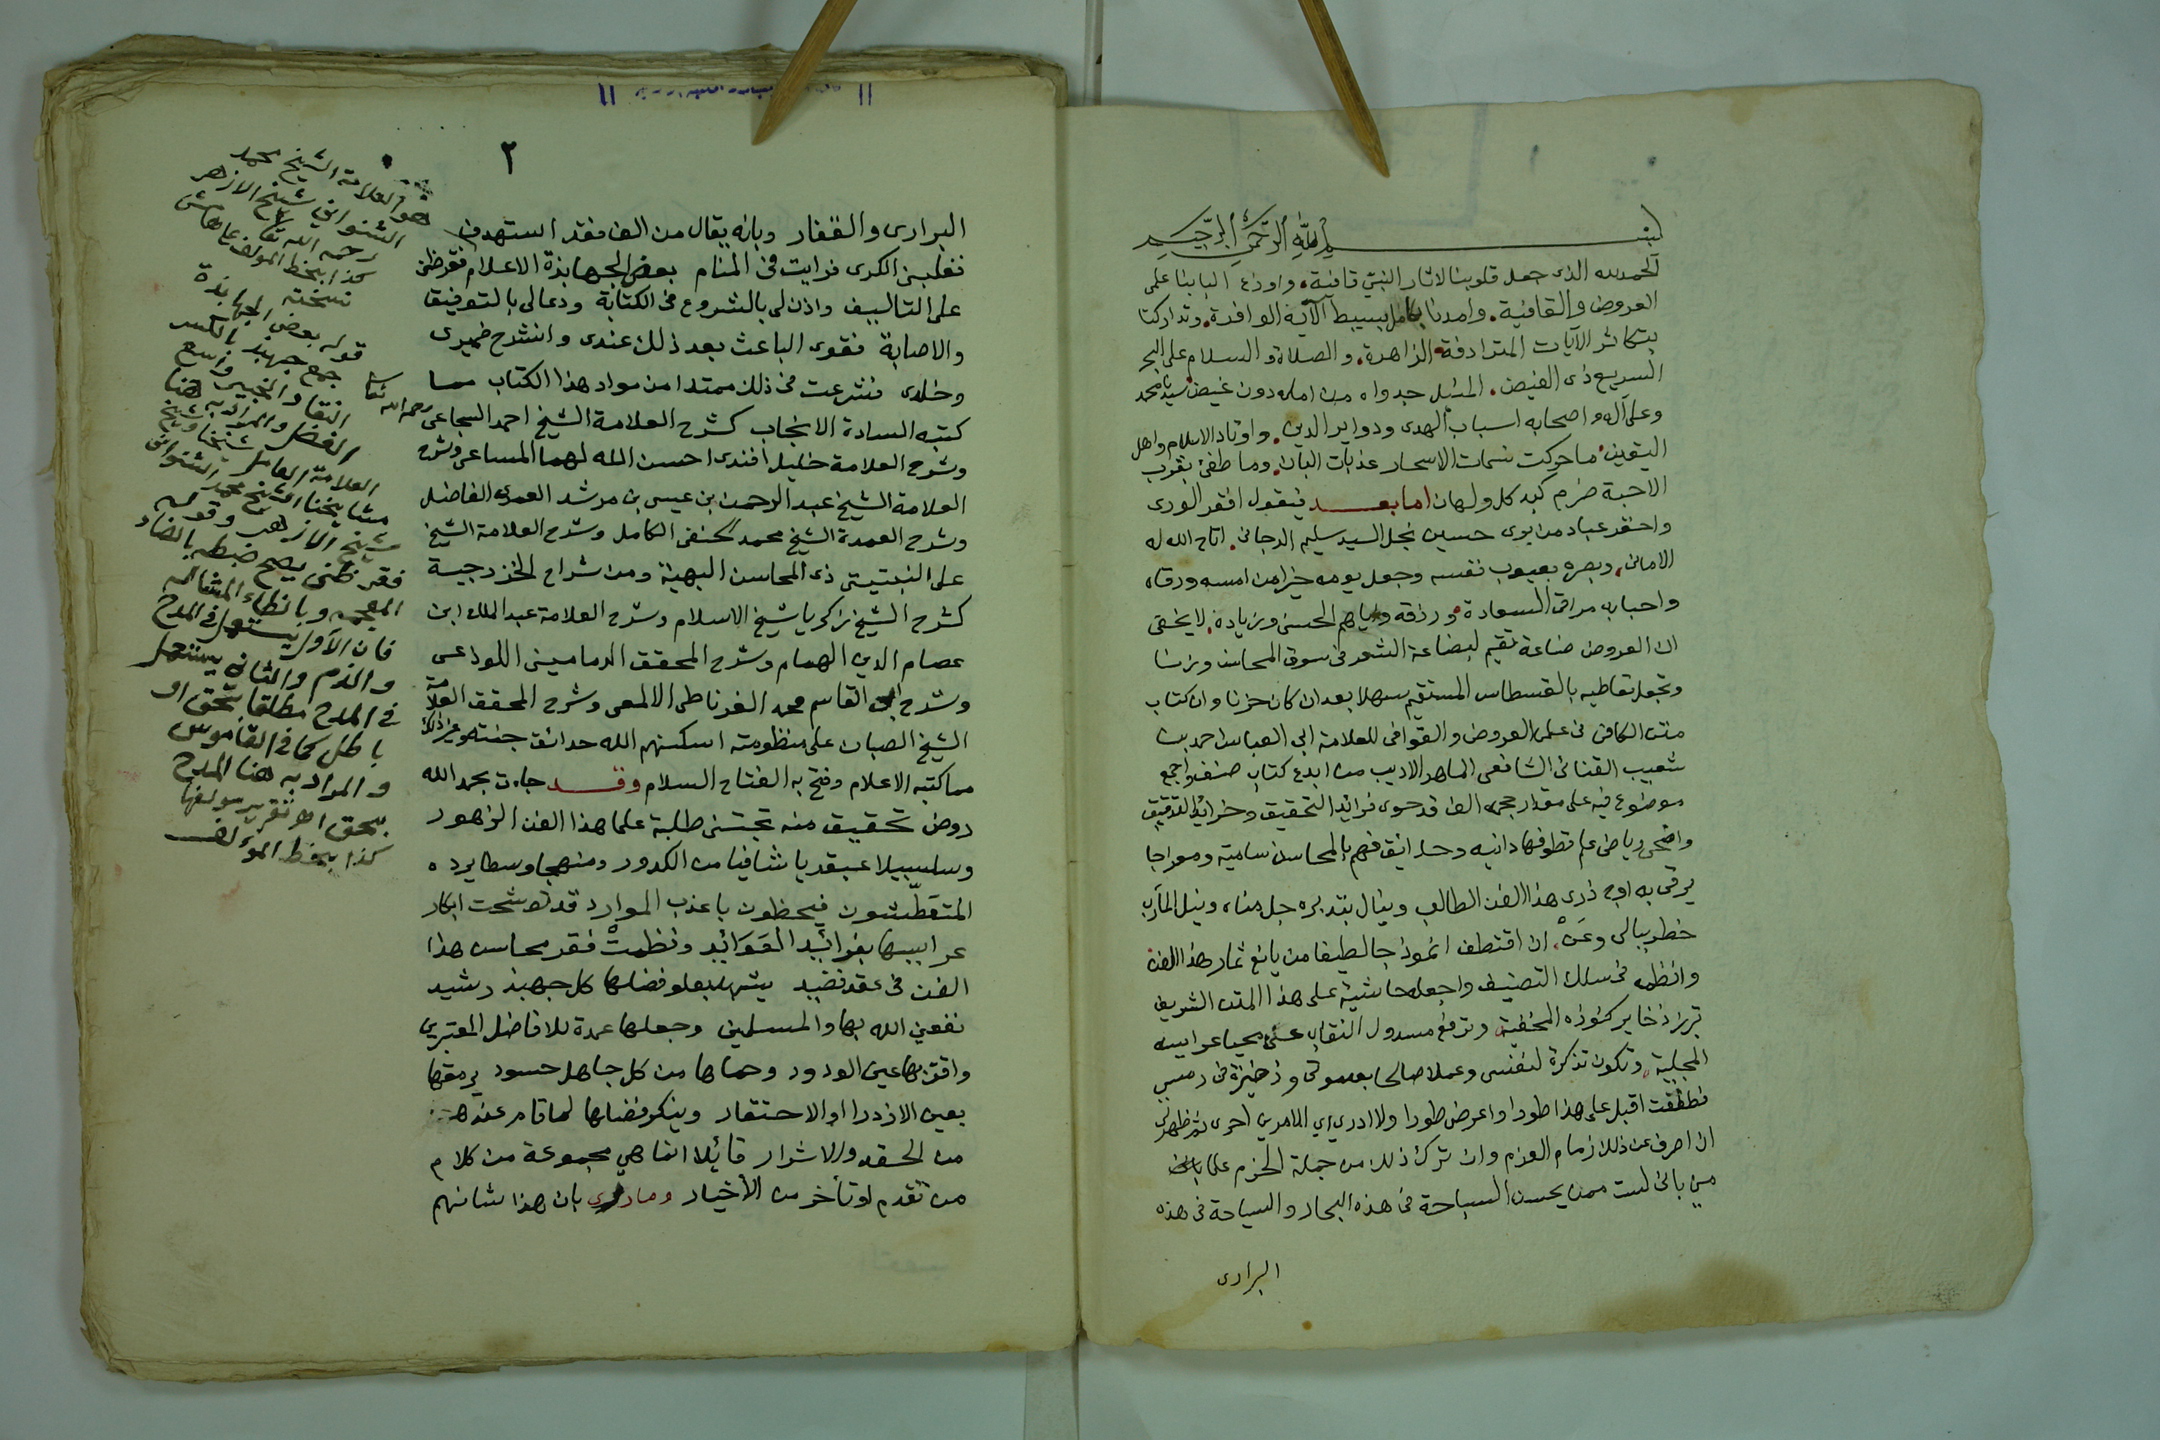 بسم الله الرحمن الرحيم
الحمد لله الذى جعل قلوبنا لاثار النبي قافية، واوزع البابنا على
العروض والقافية، وامدنا بكامل بسيط آلائه الوافرة، وتداركنا
بتكاثر الآيات المترادفة الزاهرة، والصلاة والسلام على البحر
السريع ذى الفيض، المنيل جدواه من امله دون غيض، سيدنا محمد
وعلى آله واصحابه اسباب الهدى ودواير الدين، واوتاد الاسلام واهل
اليقين، ما حركت نسمات الاسحار عذبات البان، وما طفئ بقرب
الاحبة ضرم كبد كل ولهان اما بعد فيقول افقر الورى
واحقر عباد من يرى حسين نجل السيد سليم الدجانى، اتاح الله له
الامانى، وبصره بعيوب نفسه وجعل يومه خيرا من امسه ورقاه
واحبابه مراقى السعادة، ورزقه واياهم الحسنى وزيادة، لا يخفى
ان العروض صناعة تقيم لبضاعة الشعر فى سوق المحاسن وزنا
وتجعل تعاطيه بالقسطاس المستقيم سهلا بعد ان كان حزنا وان كتاب
متن الكافى فى علمى العروض والقوافى للعلامة ابى العباس احمد بن
شعيب القنائى الشافعى الماهر الاديب من ابدع كتاب صنف واجمع
موضوع فيه على مقدار حجمه الف قد حوى فرائد التحقيق وخرائد التدقيق
واضحى رياض علم قطوفها دانيه وحدائق فهم بالمحاسن سامية ومعراجا
يرقى به اوج ذرى هذا الفن الطالب وينال بتدبره جل مناه ونيل المآرب
خطر ببالى وعنّ، ان اقتطف انموذجا لطيفا من يانع ثمار هذا الفن
وانظمه فى سلك التصنيف واجعله حاشية على هذا المتن الشريف
تبرز ذخاير كنوزه المخفية، وترفع مسدول النقاب عن محيا عرايسه
المجلية، وتكون تذكرة لنفسى وعملا صالحا بعد موتى وذخيرة فى رمسى
فطفقت اقبل على هذا طورا واعرض طورا ولا ادري اي الامرين احرى ثم ظهر لى
ان اصرف عن ذلك زمام العزم وان ترك ذلك من جملة الحزم علما
منى بانى لست ممن يحسن السباحة فى هذه البحار والسياحة فى هذه
البرارى
٢
البرارى والقفار وبانه يقال من الف فقد استهدف
فغلبنى الكرى فرايت فى المنام بعض الجهابذة الاعلام فقرظنى
على التاليف واذن لى بالشروع فى الكتابة ودعا لى بالتوفيق
والاصابة فقوى الباعث بعد ذلك عندى وانشرح ضميرى
وخلدى فشرعت فى ذلك ممتدا من مواد هذا الكتاب مما
كتبه السادة الانجاب كشرح العلامة الشيخ احمد السجاعى رحمه الله تعالى
وشرح العلامة خليل افندى احسن الله لهما المساعى وشرح
العلامة الشيخ عبد الرحمن بن عيسى بن مرشد العمرى الفاضل
وشرح العمدة الشيخ محمد الحنفى الكامل وشرح العلامة الشيخ
على النبتيتى ذى المحاسن البهية ومن شراح الخزرجية
كشرح الشيخ زكريا شيخ الاسلام وشرح العلامة عبد الملك ابن
عصام الدين الهمام وشرح المحقق الدمامينى اللوذعى
وشرح ابى القاسم محمد الغرناطى الالمعى وشرح المحقق العلامة
الشيخ الصبان على منظومته اسكنهم الله حدائق جنته وغير ذلك
مما كتبه الاعلام وفتح به الفتاح السلام وقد جاءت بحمد الله
روض تحقيق منه تجتنى طلبة علما هذا الفن الزهور
وسلسبيلا عبقريا شافيا من الكدور ومنهجا وسطا يرده
المتعطشون فيحظون باعذب الموارد قد توشحت ابكار
عرايسها بفوائد الفوايد ونظمت فقر محاسن هذا
الفن فى عقد نضيد يشهد بعلو فضلها كل جهبذ رشيد
نفعنى الله بها والمسلمين وجعلها عمدة للافاضل المعتبرين
واقر بها عين الودود وحماها من كل جاهل حسود يرمقها
بعين الازدرا والاحتقار وينكر فضلها لما قام عنده
من الحقد والاشرار قائلا انما هي مجموعة من كلام
من تقدم او تأخر من الأخيار وما درى بان هذا شانهم
هو العلامة الشيخ محمد
الشنوانى شيخ الازهر
رحمه الله تعالى
كذا بخط المولف على هامش
نسخته
قوله بعض الجهابذة
جمع جهبذ بالكسر
النقاد الخبير واسع
الفضل والمراد به هنا
العلامة الفاضل شيخنا وشيخ
مشايخنا الشيخ محمد الشنوانى
شيخ الازهر وقوله
فقرظنى يصح ضبطه بالضاد
المعجمه وبالظاء المشاله
فان الأول يستعمل فى المدح
والذم والثانى يستعمل
فى المدح مطلقا بحق او
باطل كما فى القاموس
والمراد به هنا المدح
بحق اهـ تقرير مولفها
كذا بخط المؤلف